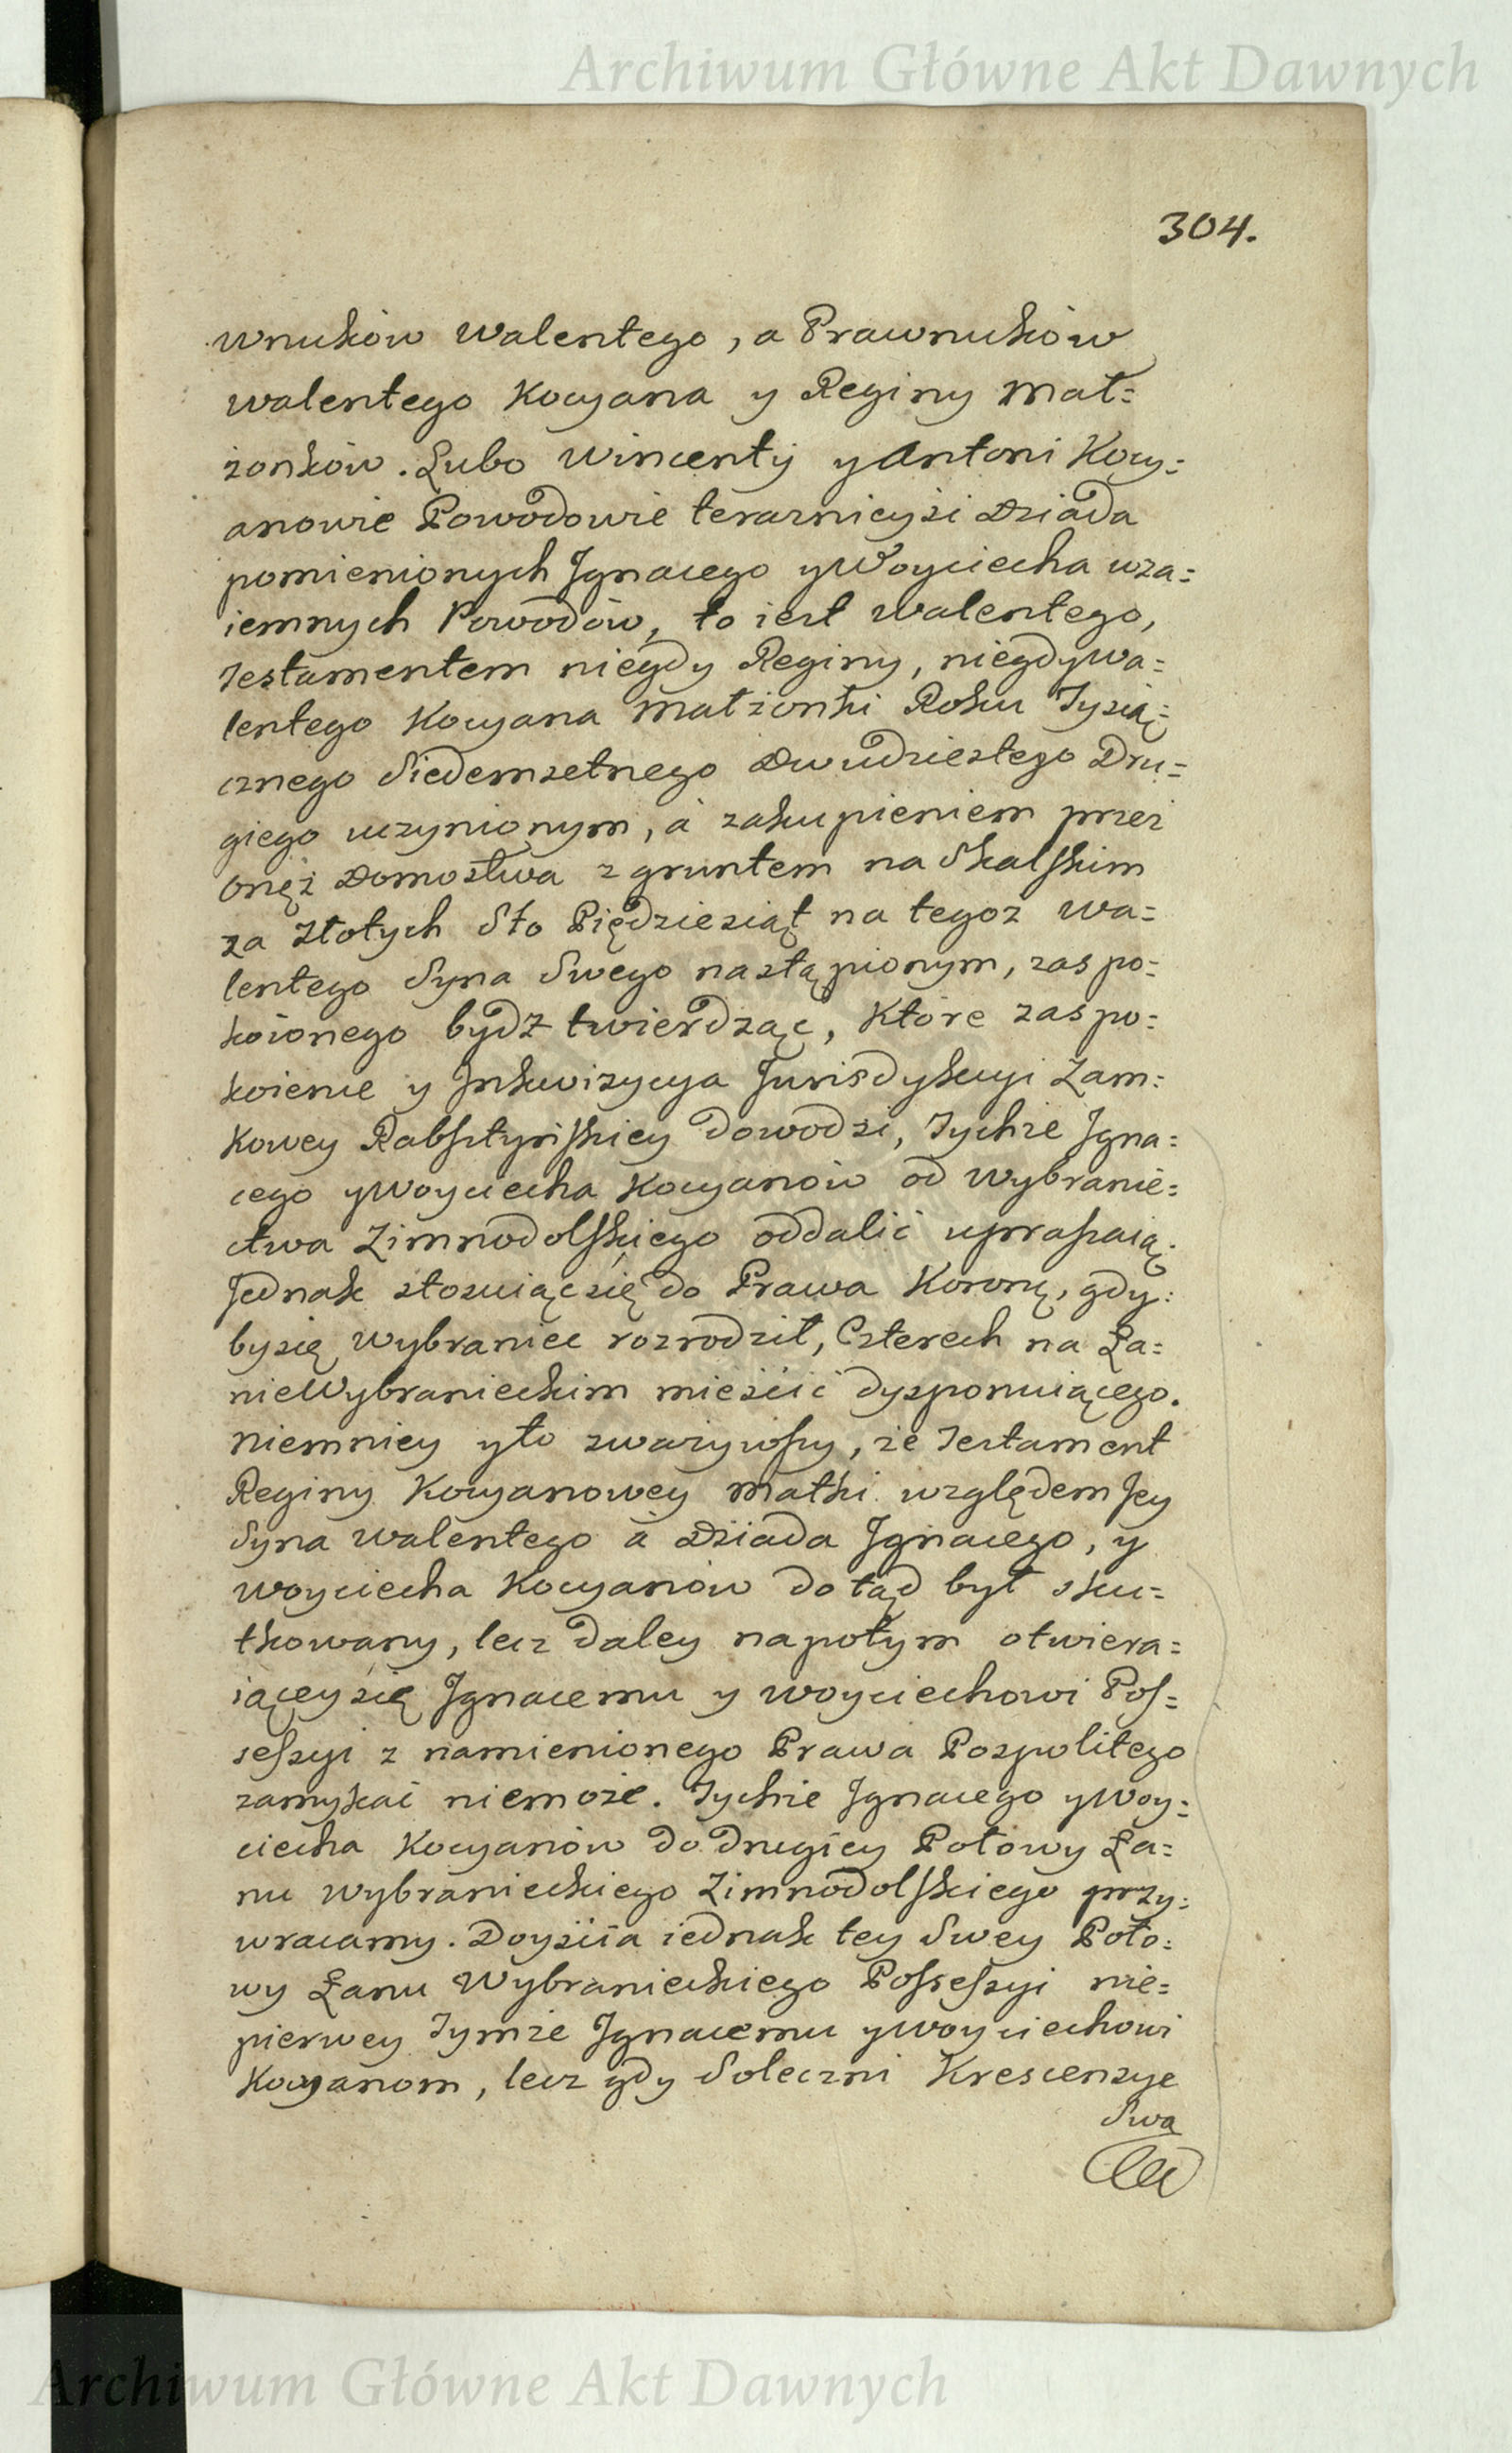 Archiwum Główne Akt Dawnych
304.
wnuków Walentego, a Prawnuków
Walentego Kocyana y Reginy Mał=
żonków. Lubo Wincenty y Antoni Kocy=
anowie Powodowie teraznieyśi Dziada
pomienionych Jgnacego y Woyciecha wza=
iemnych Powodów, to iest Walentego,
Testamentem niegdy Reginy, niegdy Wa=
lentego Kocyana Małżonki Roku Tysią=
cznego Siedemsetnego Dwudziestego Dru=
giego uczynionym, á zakupieniem przez
onęż Domostwa z gruntem na Skalskim
za Złotych Sto Pięćdziesiąt na tegoz Wa=
lentego Syna Swego nastąpionym, zaspo=
koionego bydz twierdząc, Które zaspo=
koienie y Jnkwizycya Jurisdykcyi Zam=
kowey Rabsztyńskiey dowodzi, Tychże Jgna=
cego y Woyciecha Kocyanów od Wybranie=
ctwa Zimnodolskiego oddalić upraszaią.
Jednak stosuiąc się do Prawa Koronę, gdy=
by się Wybraniec rozrodził, Czterech na Ła=
nie Wybranieckim mieśćić dysponuiącego.
Niemniey y to zwazywszy, że Testament
Reginy Kocyanowey Matki względem Jey
Syna Walentego á Dziada Jgnacego, y
Woyciecha Kocyanów dotąd był sku=
tkowany, lecz daley napotym otwiera=
iącey się Jgnacemu y Woyciechowi Pos=
sessyi z namienionego Prawa Pospolitego
zamykać niemoże. Tychże Jgnacego y Woy=
ciecha Kocyanów do drugiey Połowy Ła=
nu Wybranieckiego Zimnodolskiego przy=
wracamy. Doyśćia iednak tey Swey Poło=
wy Łanu Wybranieckiego Possessyi nie=
pierwey Tymże Jgnacemu y Woyciechowi
Kocyanom, lecz gdy Soleczni Krescenzye
Swą
Archiwum Główne Akt Dawnych